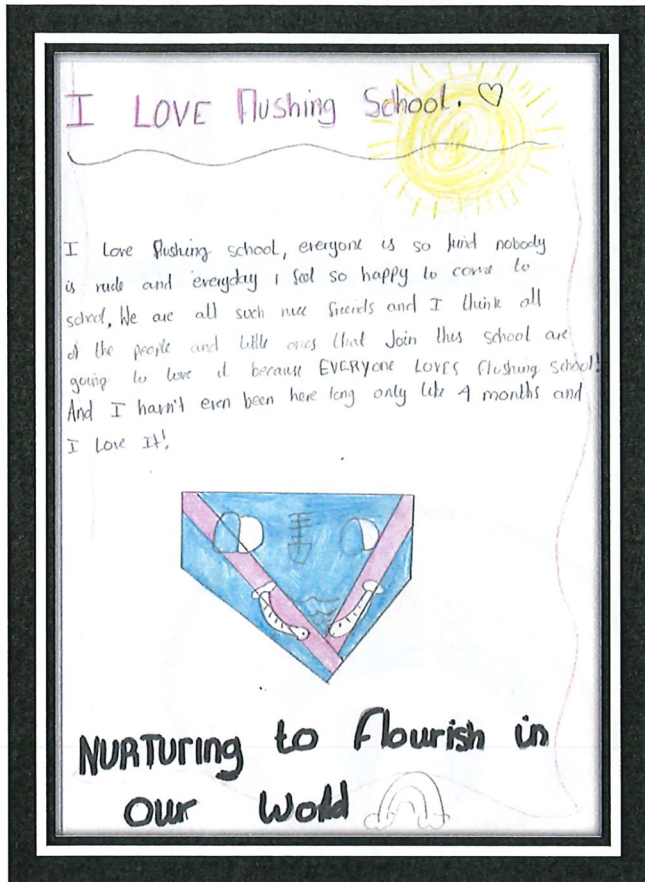 I LOVE Flushing School. ♡
I Love flushing school, everyone is so kind nobody
is rude and everyday I feel so happy to come to
school, We are all such nice friends and I think all
of the people and little ones that Join this school are
going to love it because EVERYone LOVES flushing school!
And I havn't even been here long only like 4 months and
I Love It!
NURTURing to flourish in
our Wold